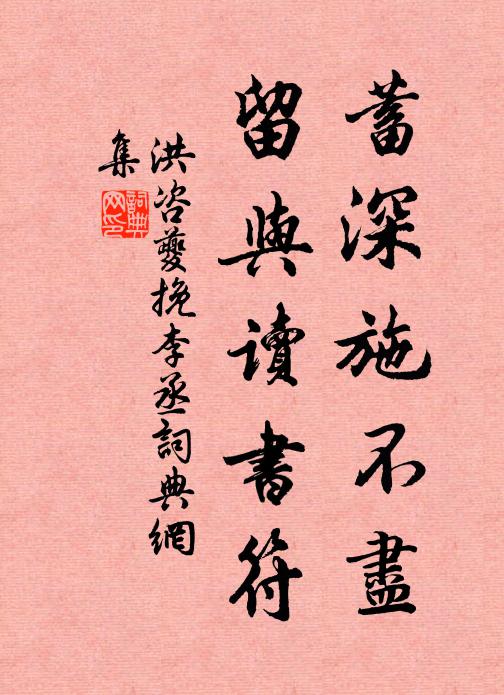 蓄深施不盡
留與讀書符
洪咨夔挽李丞詞典網
集
詞典網印